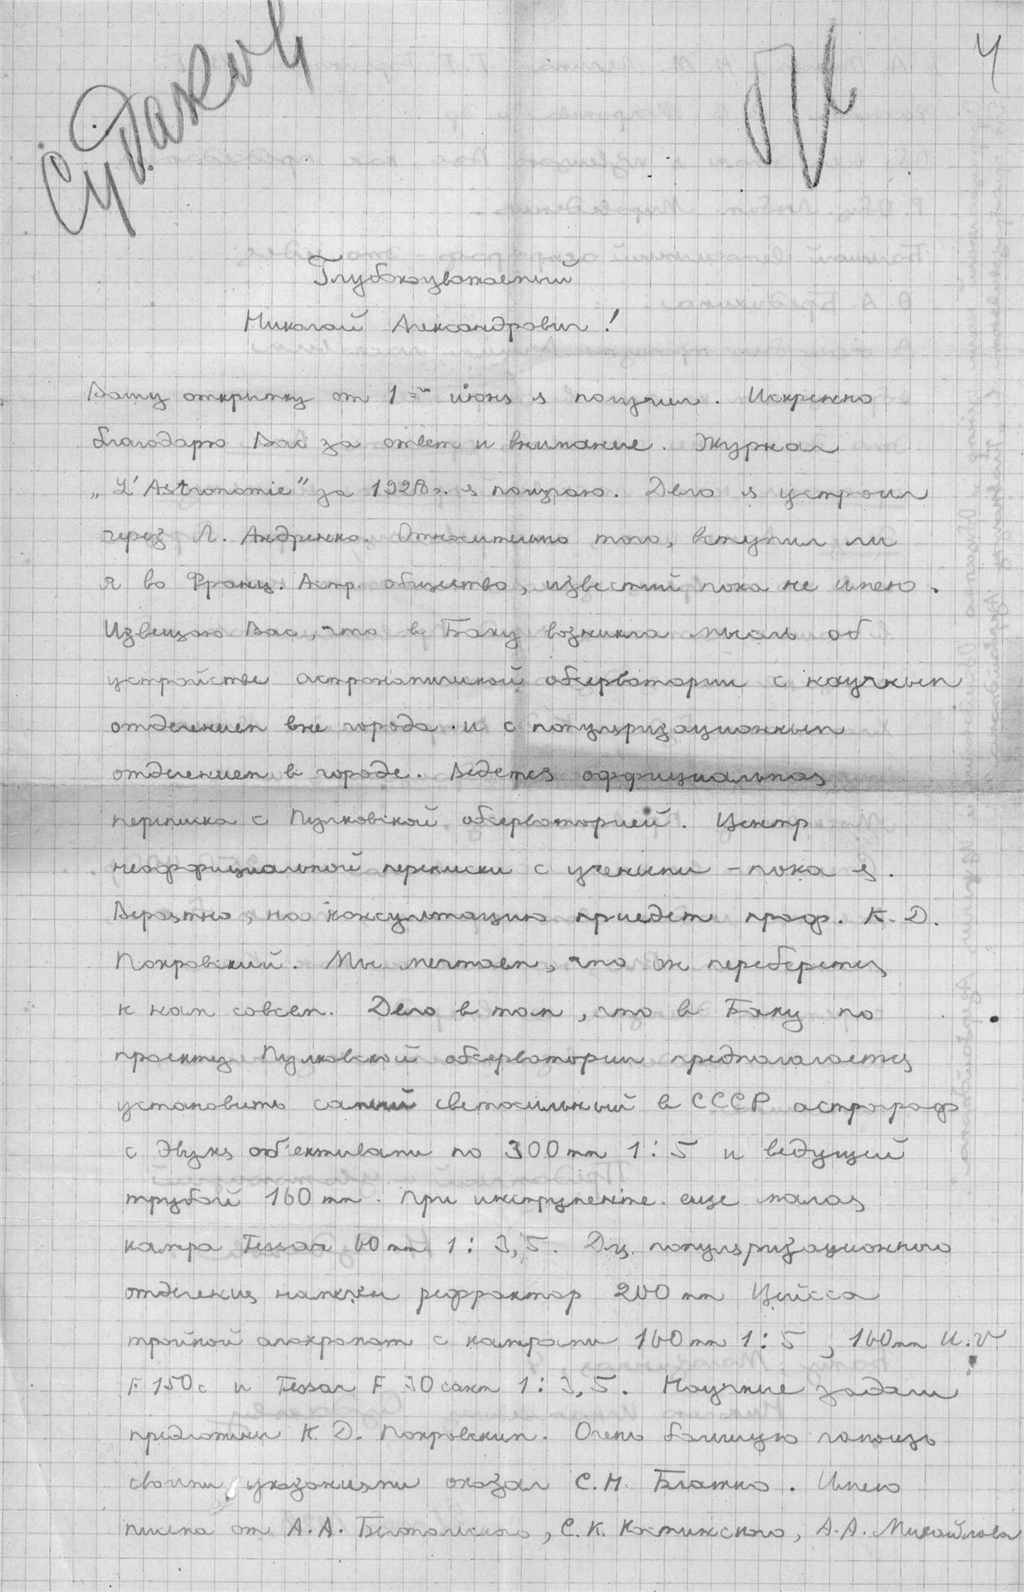 Судаков
4
Глубокоуважаемый
Николай Александрович!
Вашу открытку от 1-го июня я получил. Искренно
благодарю Вас за ответ и внимание. Журнал
„L'Astronomie" за 1928 г. я получаю. Дело я устроил
через Л. Андренко. Относительно того, вступил ли
я во Франц. Астр. общество, известий пока не имею.
Извещаю Вас, что в Баку возникла мысль об
устройстве астрономической обсерватории с научным
отделением вне города и с популяризационным
отделением в городе. Ведется оффициальная
переписка с Пулковской обсерваторией. Центр
неоффициальной переписки с учеными – пока я.
Вероятно, на консультацию приедет проф. К. Д.
Покровский. Мы мечтаем, что он переберется
к нам совсем. Дело в том, что в Баку по
проекту Пулковской обсерватории предполагается
установить самый светосильный в СССР астрограф
с двумя об'ективами по 300 mm 1:5 и ведущей
трубой 160 mm. При инструменте еще малая
камера Tessar 60 mm 1:3,5. Для популяризационного
отделения намечен рефрактор 200 mm Цейсса
тройной апохромат с камерами 160 mm 1:5, 160 mm U.V
F. 150 c и Tessar F 30 сант 1:3,5. Научные задачи
предложены К. Д. Покровским. Очень большую помощь
своими указаниями оказал С. Н. Блажко. Имею
письма от А. А. Белопольского, С. К. Костинского, А. А. Михайлова